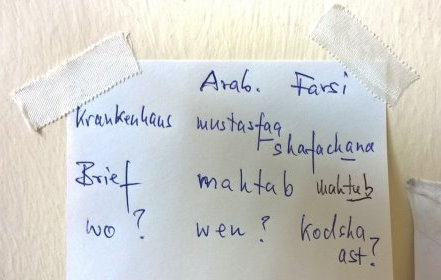 Arab. Farsi
Krankenhaus mustasfaa
shafachana
Brief mahtab mahtub
wo? wen? kodsha
ast?